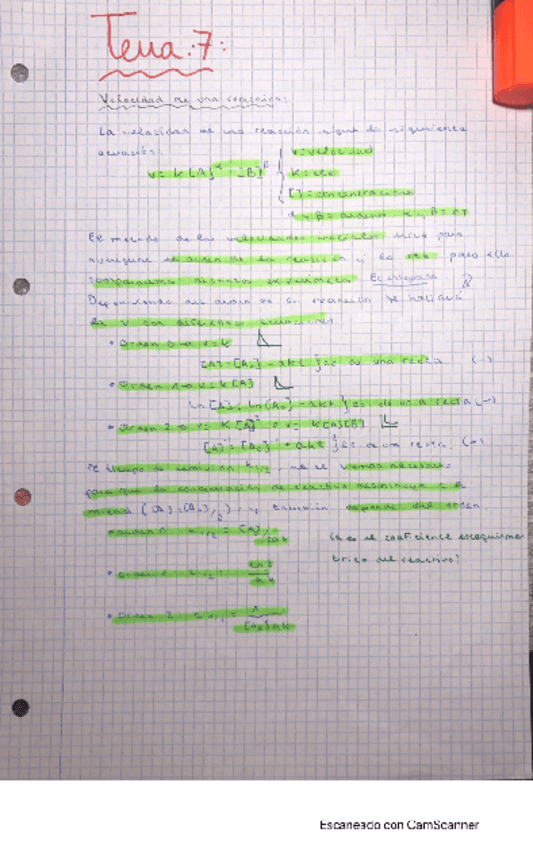 Tema 7:
Velocidad de una reacción:
La velocidad de una reacción sigue la siguiente
ecuación:
v = k[A]^α [B]^β
v = velocidad
K = cte
[ ] = concentración
α y B = orden
El metodo de las velocidades iniciales sirve para
averiguar el orden de la reacción y la cte, para ello
comparamos
Dependiendo del orden de la reacción se hallará
la v con diferentes ecuaciones
• Orden 0 → v = k
[A] = [A₀] - akt } ec de una recta (-)
• Orden 1 → v = k[A]
ln[A] = ln[A₀] - akt } ec de una recta (-)
• Orden 2 → v = K[A]² o v = k[A][B]
[A]⁻¹ = [A₀]⁻¹ + akt } ec de una recta (+)
El tiempo de semireacción t1/2, es el tiempo necesario
para que la concentración de reactivo disminuya a la
mitad ([A] = [A₀]/2), y también depende del orden.
• Orden 0 t1/2 = [A₀] / 2ak
(a es el coeficiente estequiomé
trico del reactivo)
• Orden 1 t1/2 = ln2 / ak
• Orden 2 t1/2 = 1 / [A₀]ak
Escaneado con CamScanner